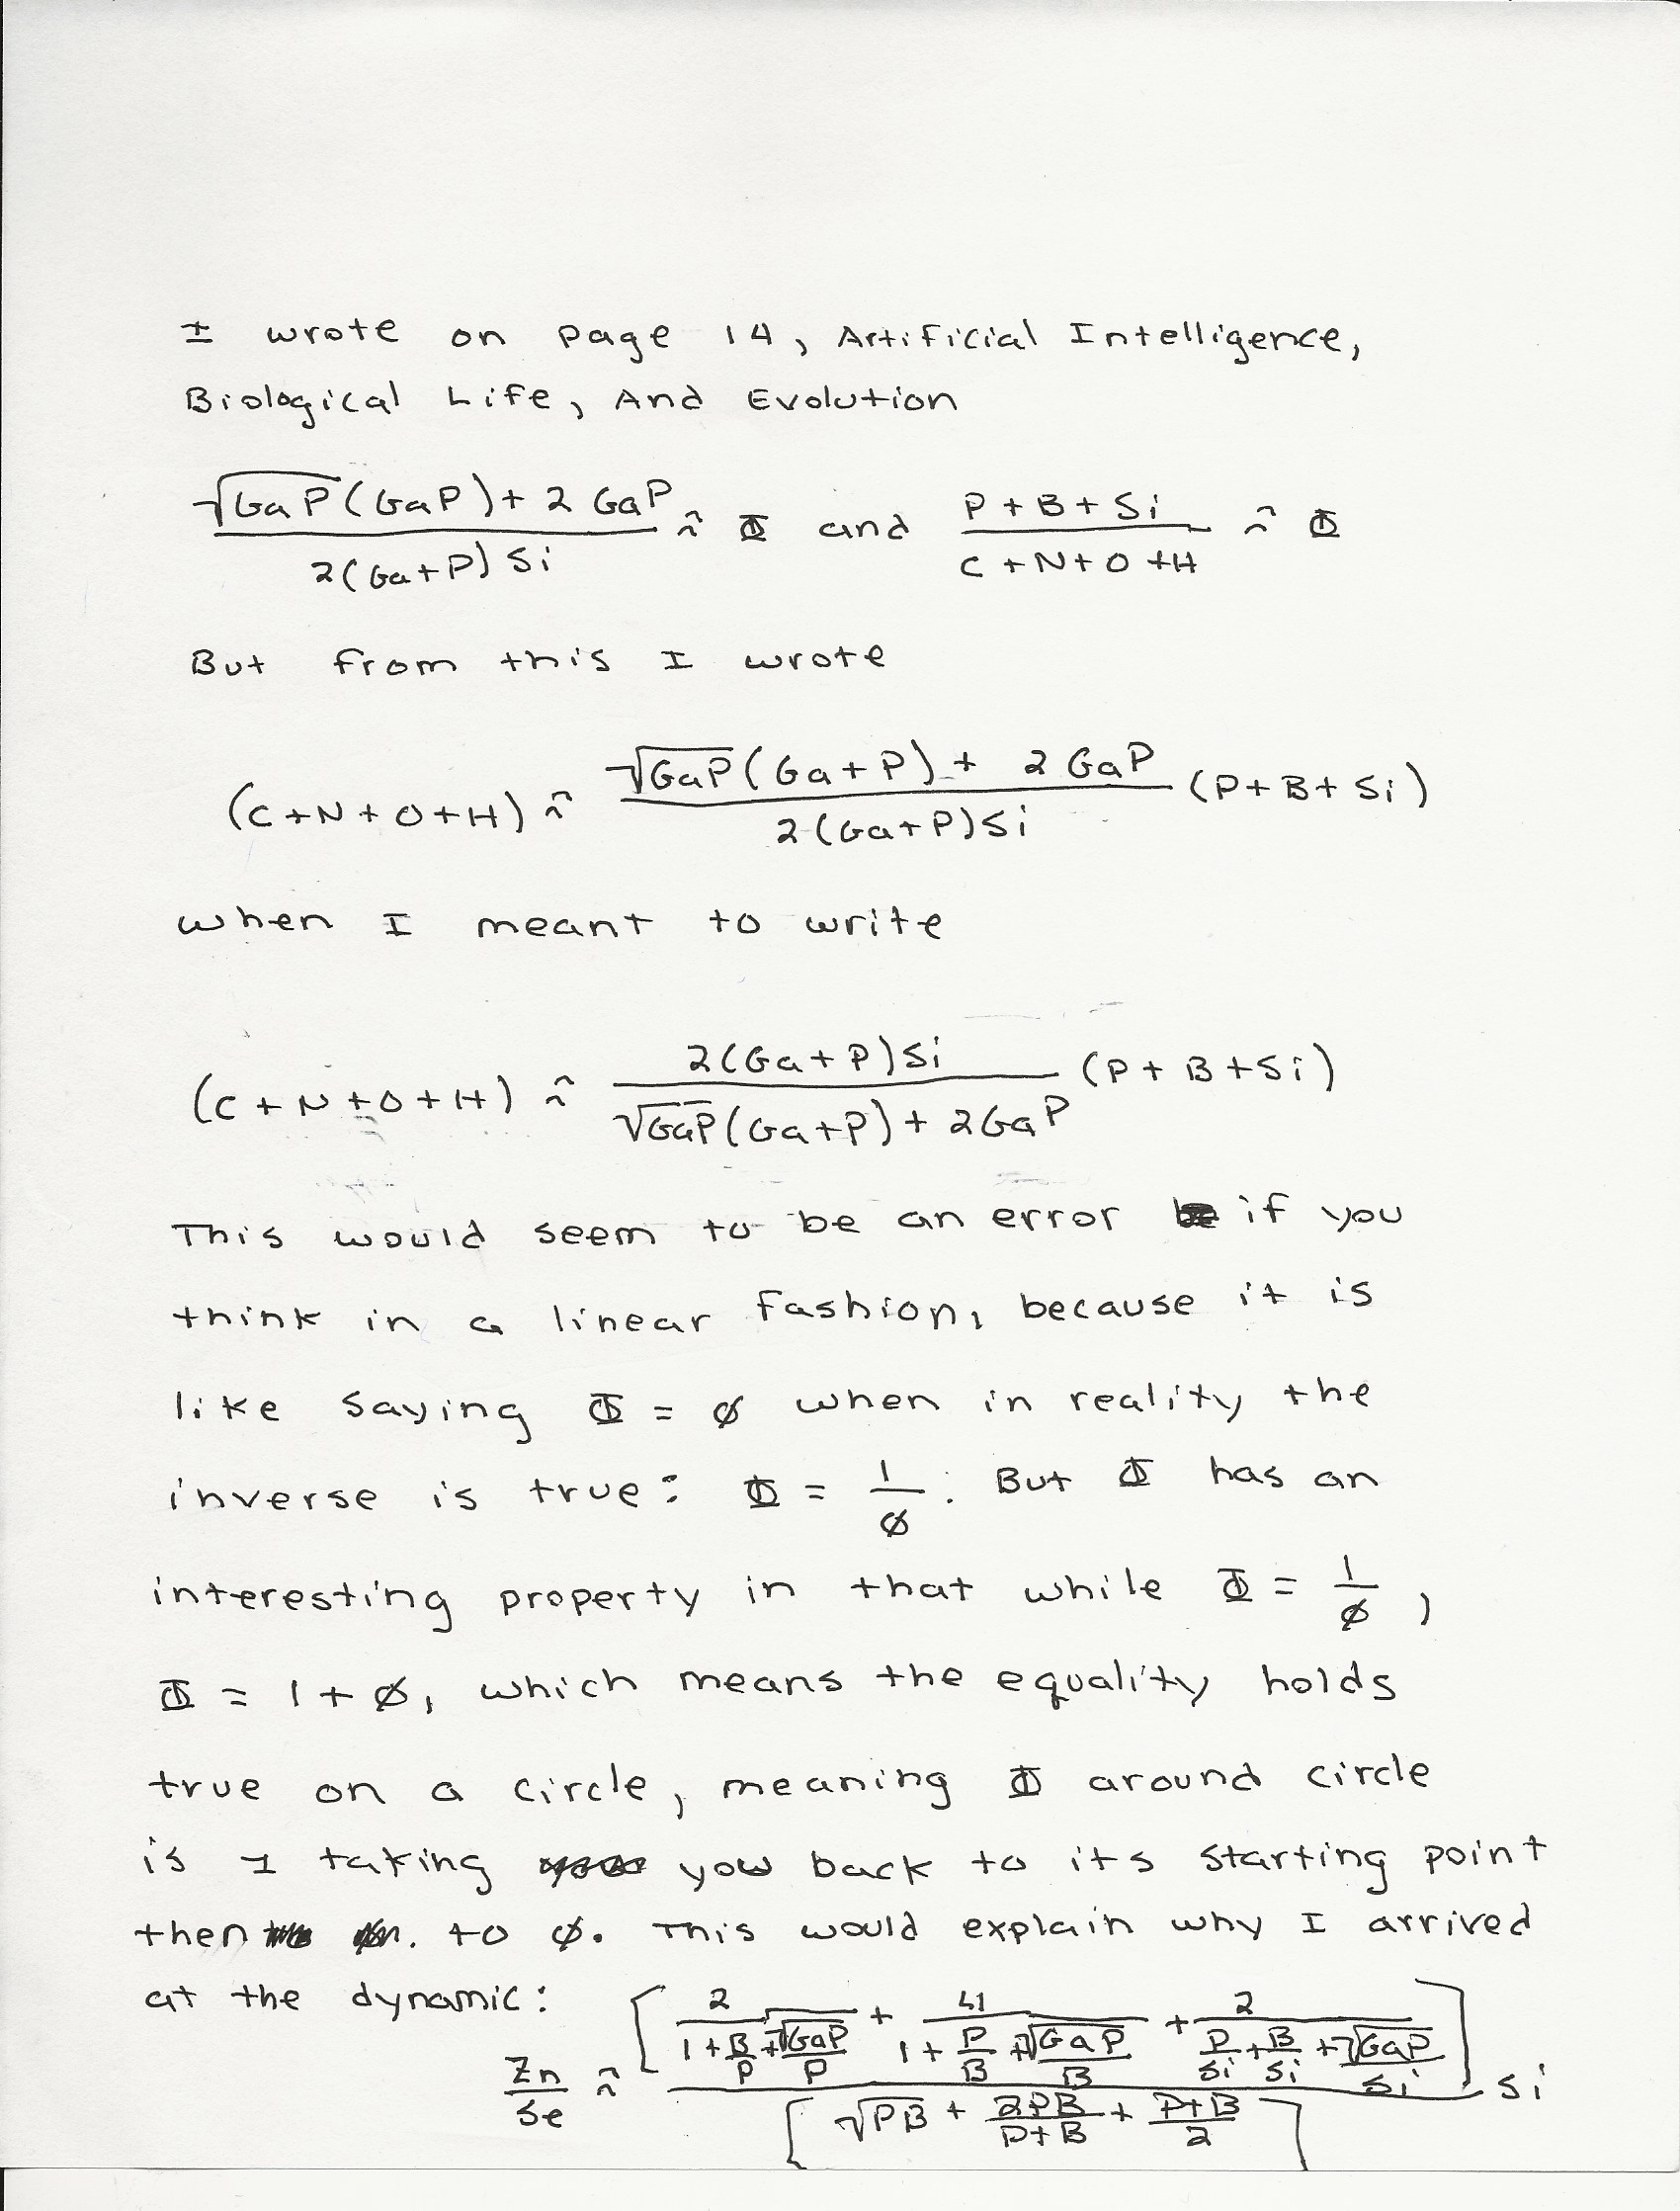 I wrote on page 14, Artificial Intelligence,
Biological Life, And Evolution
√GaP(GaP)+2GaP / 2(Ga+P)Si ≈ Φ and P+B+Si / C+N+O+H ≈ Φ
But from this I wrote
(C+N+O+H) ≈ √GaP(Ga+P)+2GaP / 2(Ga+P)Si (P+B+Si)
when I meant to write
(C+N+O+H) ≈ 2(Ga+P)Si / √GaP(Ga+P)+2GaP (P+B+Si)
This would seem to be an error if you
think in a linear fashion, because it is
like saying Φ = ϕ when in reality the
inverse is true: Φ = 1/ϕ. But Φ has an
interesting property in that while Φ = 1/ϕ,
Φ = 1+ϕ, which means the equality holds
true on a circle, meaning Φ around circle
is 1 taking you back to its starting point
then to ϕ. This would explain why I arrived
at the dynamic:
Zn/Se ≈ [2/(1+B/P+√GaP/P) + 4/(1+P/B+√GaP/B) + 2/(P/Si+B/Si+√GaP/Si)] / [√PB + 2PB/(P+B) + (P+B)/2] Si